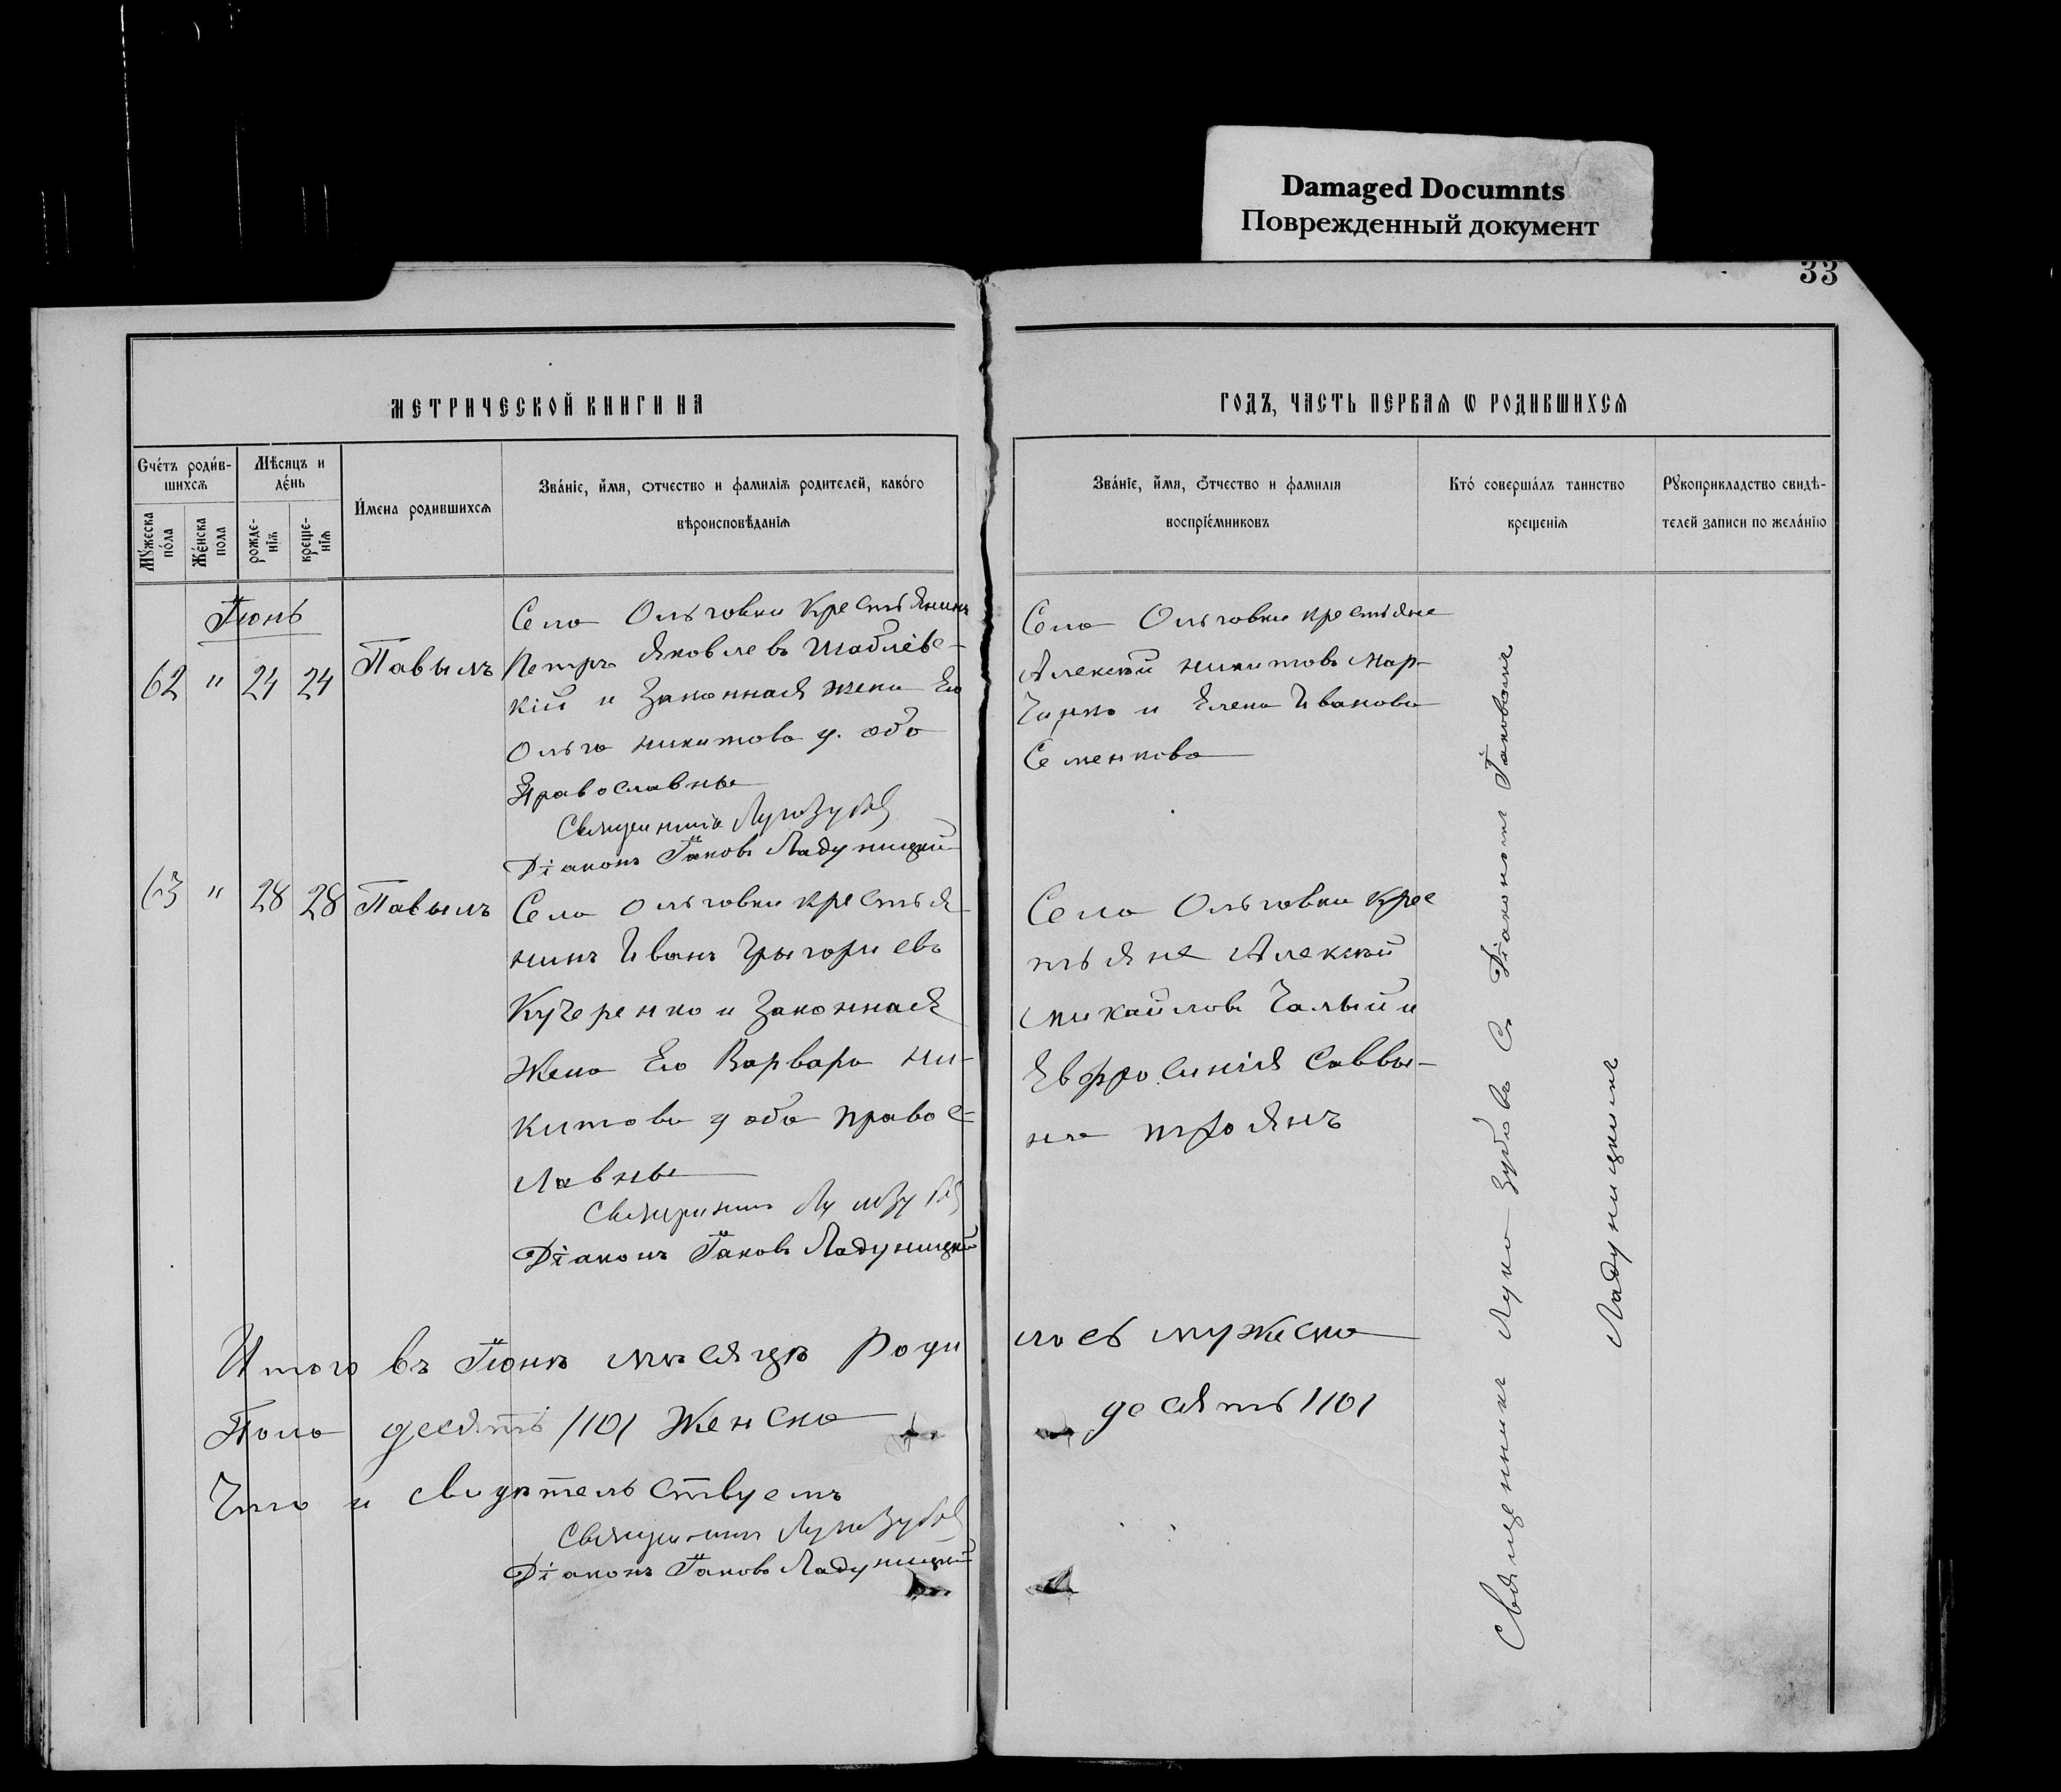 Damaged Documnts
Поврежденный документ
33
МЕТРИЧЕСКОЙ КНИГИ НА
ГОДЪ, ЧАСТЬ ПЕРВАЯ Ѡ РОДИВШИХСЯ
Счетъ родив-
шихся
Мѣсяцъ и
день
Мужеска
пола
Женска
пола
рожде-
нія
креще-
нія
Имена родившихся
Званіе, имя, отчество и фамилія родителей, какого
вѣроисповѣданія
Званіе, имя, отчество и фамилія
воспріемниковъ
Кто совершалъ таинство
крещенія
Рукоприкладство свидѣ-
телей записи по желанію
Іюнь
62 " 24 24 Павылъ
Села Ольговки крестьянинъ
Петръ Яковлевъ
кій и законная жена его
Ольга Никитова у. оба
Православные
Священникъ Лука Зубовъ
Діаконъ Іаковъ Ладуницкій
Села Ольговки крестьяне
Алексѣй Никитовъ Мар-
ченко и Елена Иванова
Семенкова
63 " 28 28 Павылъ
Села Ольговки крестья
нинъ Иванъ Грыгориевъ
Кучеренко и законная
жена его Варвара Ни-
китова у оба правос-
лавные
Священникъ Лука Зубовъ
Діаконъ Іаковъ Ладуницкій
Села Ольговки крес
тьяне Алексѣй
Михайловъ Чалый и
Евфросинія Саввы-
на Троянъ
Священникъ Лука Зубовъ съ Діакономъ Іаковомъ
Ладуницкимъ
Итого въ Іюнѣ мѣсяцѣ роди лось мужеска
Пола десять /10/ женска десять /10/
Что и свидѣтельствуемъ
Священникъ Лука Зубовъ
Діаконъ Іаковъ Ладуницкій